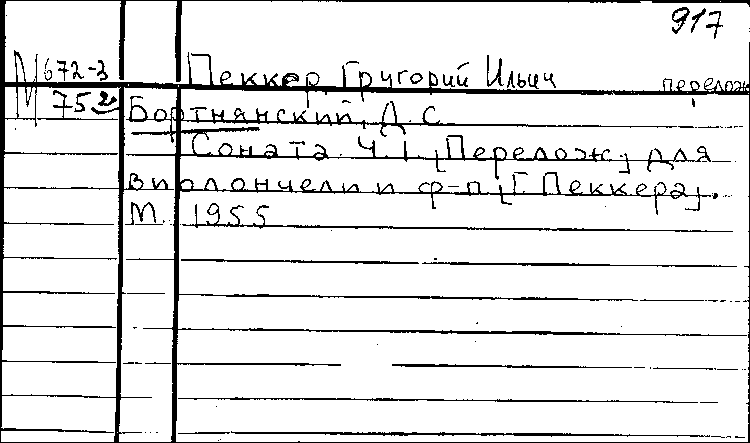 917
М 672-3 Пеккер, Григорий Ильич перелож
75 2 Бортнянский, Д. С.
Соната. Ч. I. [Перелож] для
виолончели и ф-п [Г. Пеккера].
М. 1955